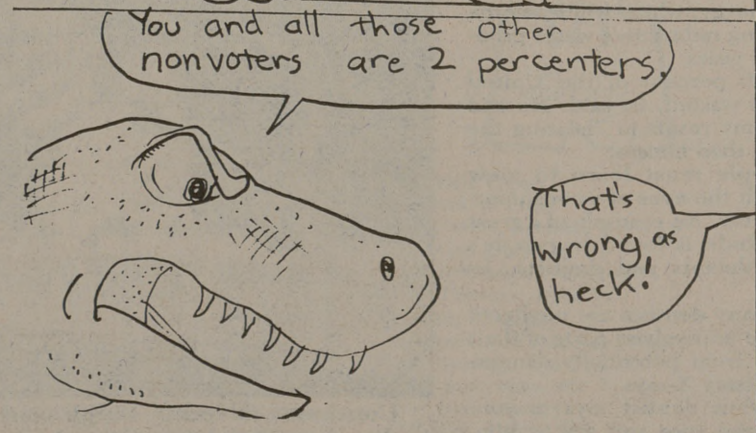 You and all those other
nonvoters are 2 percenters.
That's
wrong as
heck!